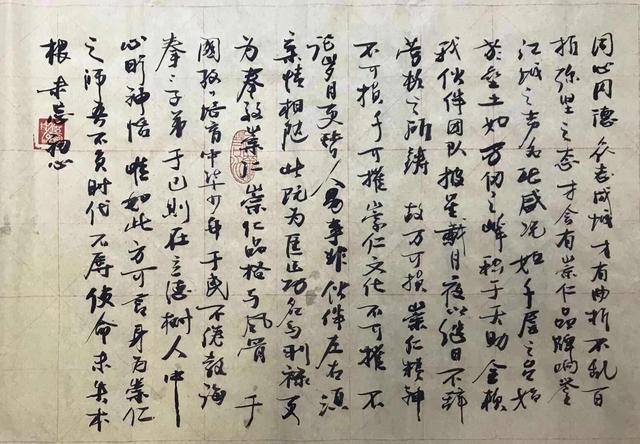 同心同德众志成城才有曲折不乱百
指弥坚之志才会有崇仁品牌响誉
江城之声名此盛况如千层之台始
於垒土如万仞之峰积于天助全赖
我伙伴团队披星戴月夜以继日不辞
劳顿之所铸故万可损崇仁精神
不可损千可摧崇仁文化不可摧不
论岁月更替人易事非伙伴左右须
亲情相随此既为匡正功名与利禄更
为秉教崇仁崇仁品格与风骨于
国培育中华少年于民不倦教诲
子弟于己则在立德树人中
心旷神怡唯如此方可言身为崇仁
之师吾不负时代不辱使命本
根未忘初心